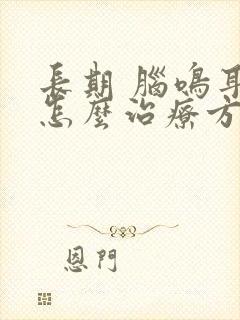 長期 腦鳴耳
怎麼治療方
恩門